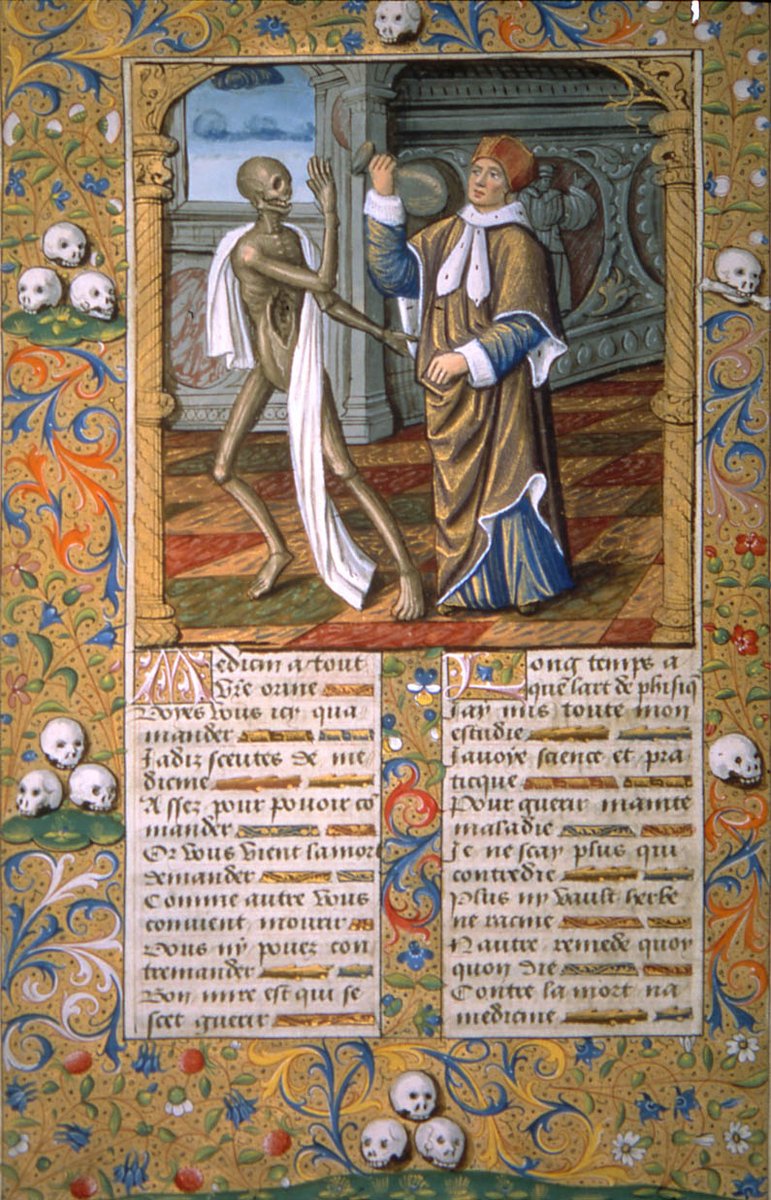 Medicin a tout
vr̃e orine
Voyes vous icy qua
mander
Jadiz sceutes de me
dicine
Assez pour pouoir cõ
mander
Or vous vient la mort
demander
Comme autre vous
conuient mourir
Vous ny pouez con
tremander
Bon mire est qui se
scet guerir
Long temps a
que lart de phisiq̃
Jay mis toute mon
estudie
Jauoye science et pra
ticque
Pour guerir mainte
maladie
Je ne scay plus qui
contredie
Plus ny vault herbe
ne racine
Nautre remede quoy
quon die
Contre la mort na
medicine